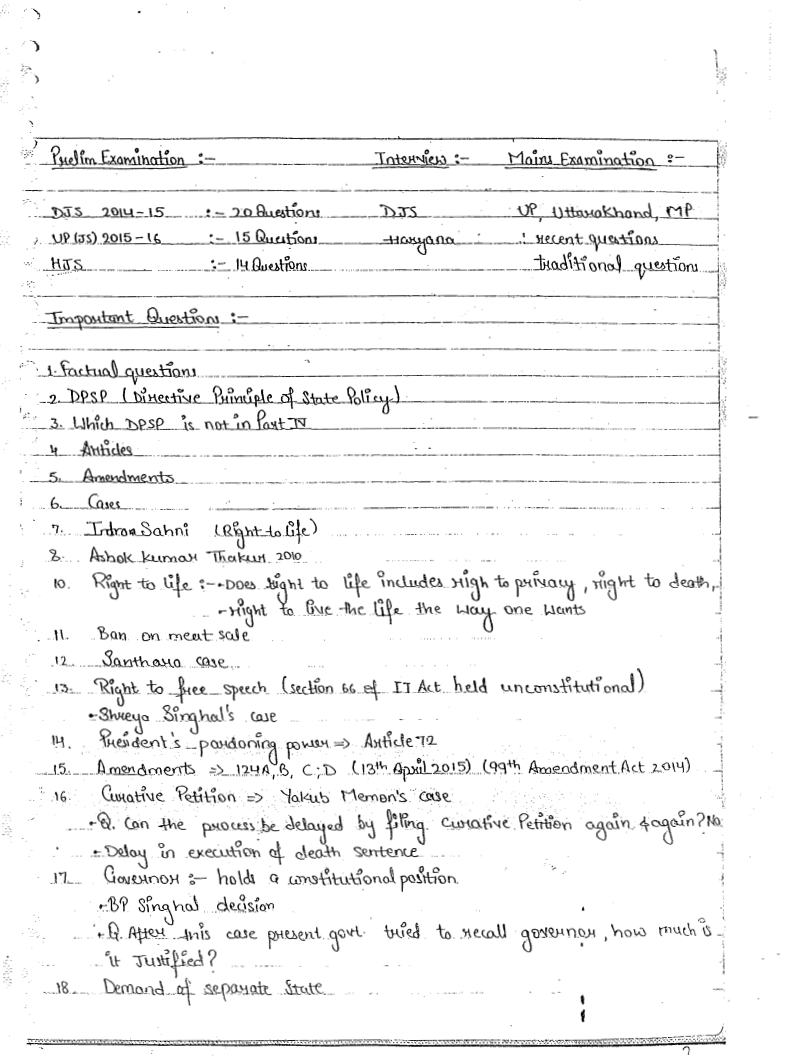 Prelim Examination :- Interview :- Mains Examination :-
DJS 2014-15 :- 20 Questions DJS UP, Uttarakhand, MP
UP (JS) 2015-16 :- 15 Questions Haryana : recent questions
HJS :- 14 Questions traditional question
Important Question :-
1. Factual questions
2. DPSP (Directive Principle of State Policy)
3. Which DPSP is not in Part IV
4 Articles
5. Amendments
6. Cases
7. Indra Sahni (Right to life)
8. Ashok Kumar Thakur 2010
10. Right to life :- • Does right to life includes righ to privacy, right to death,
- right to live the life the way one wants
11. Ban on meat sale
12. Santhara case
13. Right to free speech (section 66 of IT Act held unconstitutional)
• Shreya Singhal's case
14. President's pardoning power => Article 72
15. Amendments => 124A, B, C, D (13th April 2015) (99th Amendment Act 2014)
16. Curative Petition => Yakub Memon's case
• Q. Can the process be delayed by filing Curative Petition again & again? No
• Delay in execution of death sentence
17. Governor :- holds a constitutional position
• BP Singhal decision
• Q. After this case present govt. tried to recall governor, how much is
it Justified?
18. Demand of separate State